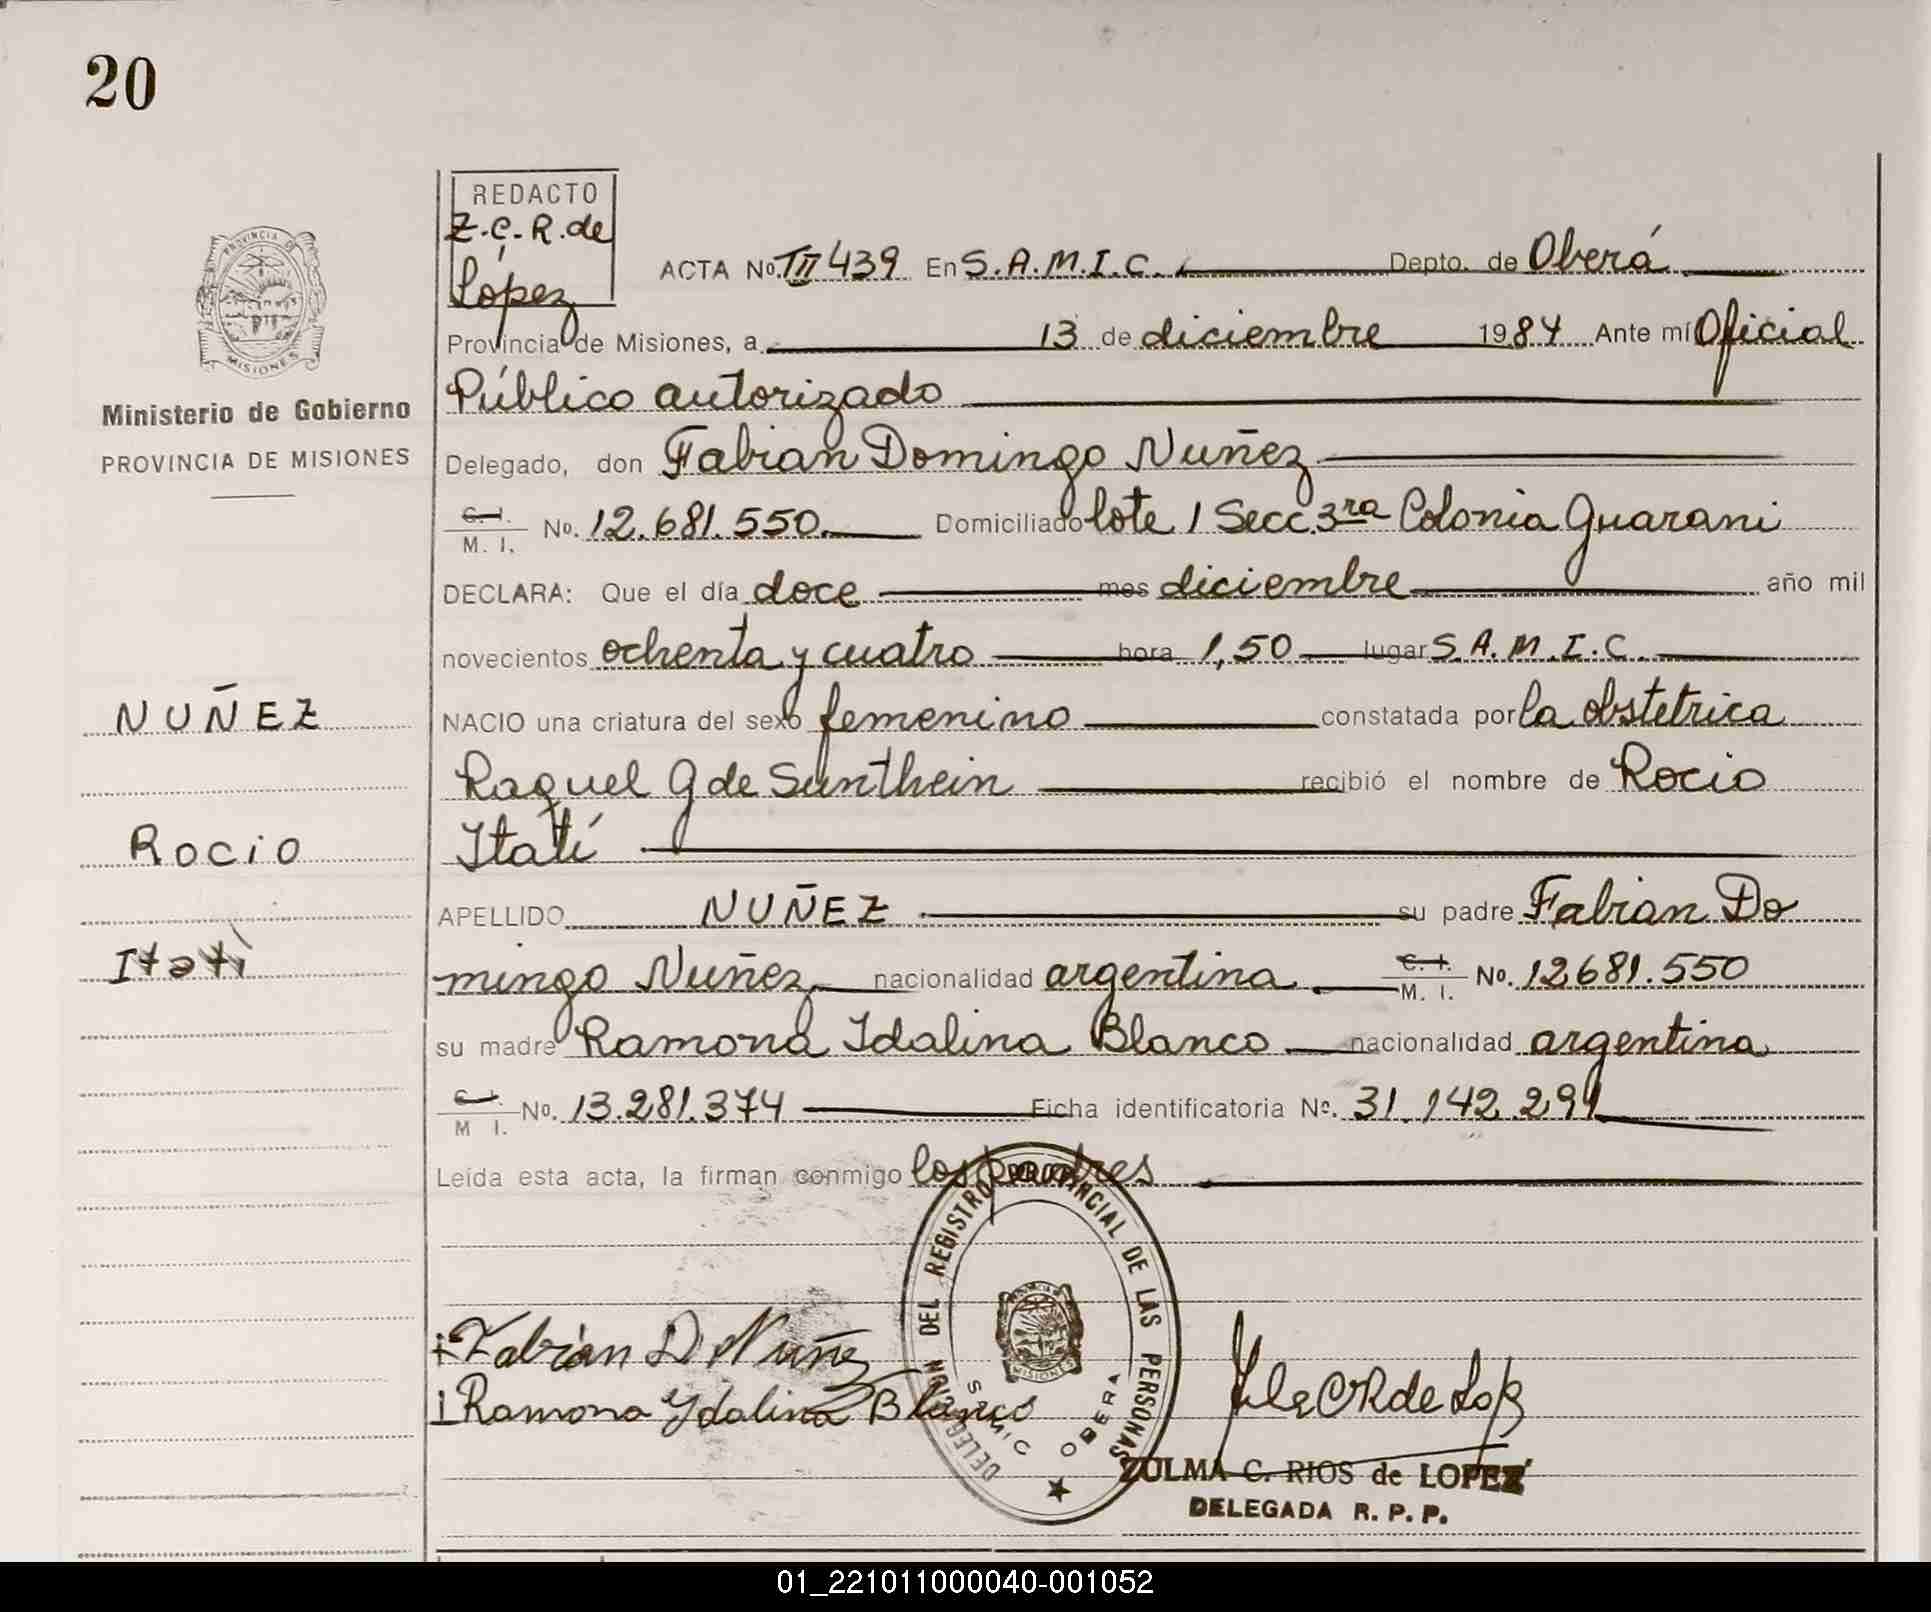 20
REDACTO
Z.C.R. de
López
ACTA No. TII 439 En S.A.M.I.C. Depto. de Oberá
Provincia de Misiones, a 13 de diciembre 1984 Ante mí Oficial
Público autorizado
Delegado, don Fabian Domingo Nuñez
C. I. / M. I. No. 12.681.550 Domiciliado lote 1 Secc. 3ra Colonia Guarani
DECLARA: Que el día doce mes diciembre año mil
novecientos ochenta y cuatro hora 1,50 lugar S.A.M.I.C.
NACIO una criatura del sexo femenino constatada por la obstetrica
Raquel G de Sunthein recibió el nombre de Rocio
Itatí
APELLIDO NUÑEZ su padre Fabian Do
mingo Nuñez nacionalidad argentina C. I. / M. I. No. 12681.550
su madre Ramona Idalina Blanco nacionalidad argentina
C. I. / M I. No. 13.281.374 Ficha identificatoria No. 31.142.291
Leída esta acta, la firman conmigo los padres
PROVINCIA DE
MISIONES
Ministerio de Gobierno
PROVINCIA DE MISIONES
NUÑEZ
Rocio
Itatí
Fabián D Nuñez
Ramona Ydalina Blanco
DELEGACION DEL REGISTRO PROVINCIAL DE LAS PERSONAS
SAMIC OBERA
MISIONES
ZULMA C. RIOS de LOPEZ
DELEGADA R. P. P.
01_221011000040-001052